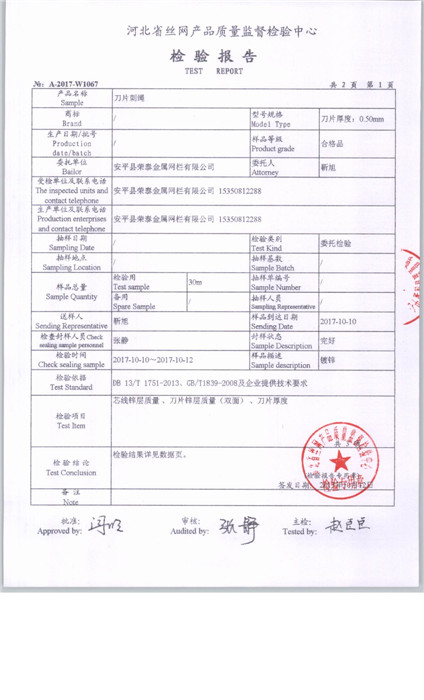 河北省丝网产品质量监督检验中心
检验报告
TEST REPORT
№: A-2017-W1067 共 2 页 第 1 页
产品名称 Sample 刀片刺绳
商标 Brand / 型号规格 Model Type 刀片厚度：0.50mm
生产日期/批号 Production date/batch / 样品等级 Product grade 合格品
委托单位 Bailor 安平县荣泰金属网栏有限公司 委托人 Attorney 靳旭
受检单位及联系电话 The inspected units and contact telephone 安平县荣泰金属网栏有限公司 15350812288
生产单位及联系电话 Production enterprises and contact telephone 安平县荣泰金属网栏有限公司 15350812288
抽样日期 Sampling Date / 检验类别 Test Kind 委托检验
抽样地点 Sampling Location / 抽样基数 Sample Batch /
样品总量 Sample Quantity 检验用 Test sample 30m 抽样单编号 Sample Number /
备用 Spare Sample / 抽样人员 Sampling Representative /
送样人 Sending Representative 靳旭 样品到达日期 Sending Date 2017-10-10
检查封样人员 Check sealing sample personnel 张静 封样状态 Sample Description 完好
检验时间 Check sealing sample 2017-10-10～2017-10-12 样品描述 Sample description 镀锌
检验依据 Test Standard DB 13/T 1751-2013、GB/T1839-2008及企业提供技术要求
检验项目 Test Item 芯线锌层质量、刀片锌层质量（双面）、刀片厚度
共 3 项
检验结论 Test Conclusion 检验结果详见数据页。
签发日期：
备注 Note
批准: Approved by: 审核: Audited by: 张静 主检: Tested by: